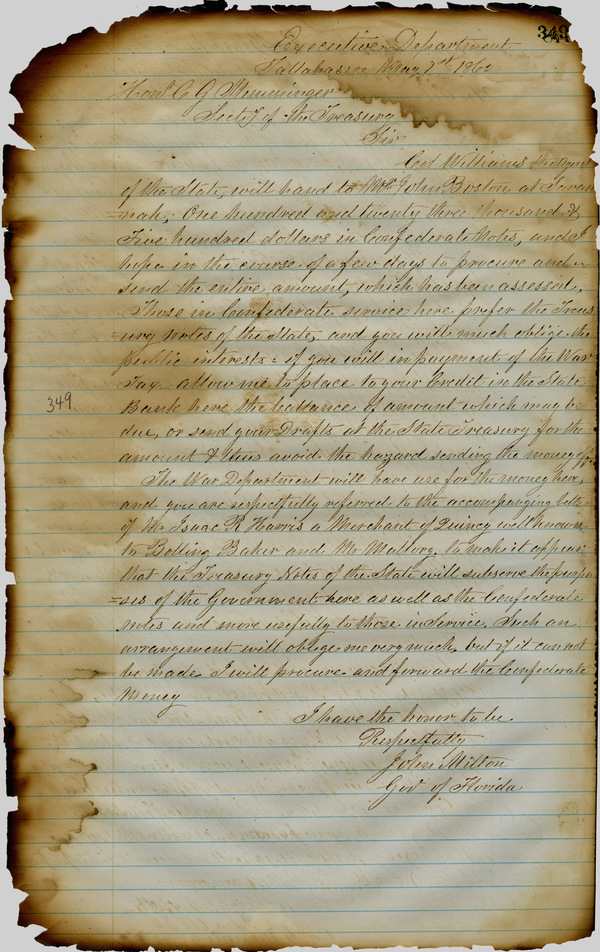 349
Executive Department
Tallahassee May 7th 1862
Honl C G Memminger
Secty of the Treasury
Sir
Col Williams the Agent
of the State, will hand to Mr. John Boston at Savan
=nah, One hundred and twenty three thousand &
Five hundred dollars in Confederate Notes, and I
hope in the course of a few days to procure and
send the entire amount, which has been assessed.
Those in Confederate service here prefer the Treas
=ury notes of the State, and you will much oblige the
public interests = if you will in payment of the War
Tax allow me to place to your Credit in the State
Bank here the ballance of amount which may be
due, or send your Drafts at the State Treasury for the
amount & thus avoid the hazard sending the money off.
349
The War Department will have use for the money here,
and you are respectfully referred to the accompanying letter
of Mr Isaac R Harris a Merchant of Quincy well known
to Bolling Baker and Mr Mallory, to make it appear
that the Treasury Notes of the State will subserve the purpo
=ses of the Government here as well as the Confederate
notes and more usefully to those in Service, Such an
arrangement will oblige me very much, but if it can not
be made I will procure and forward the Confederate
Money
I have the honor to be
Respectfully
John Milton
Gov of Florida